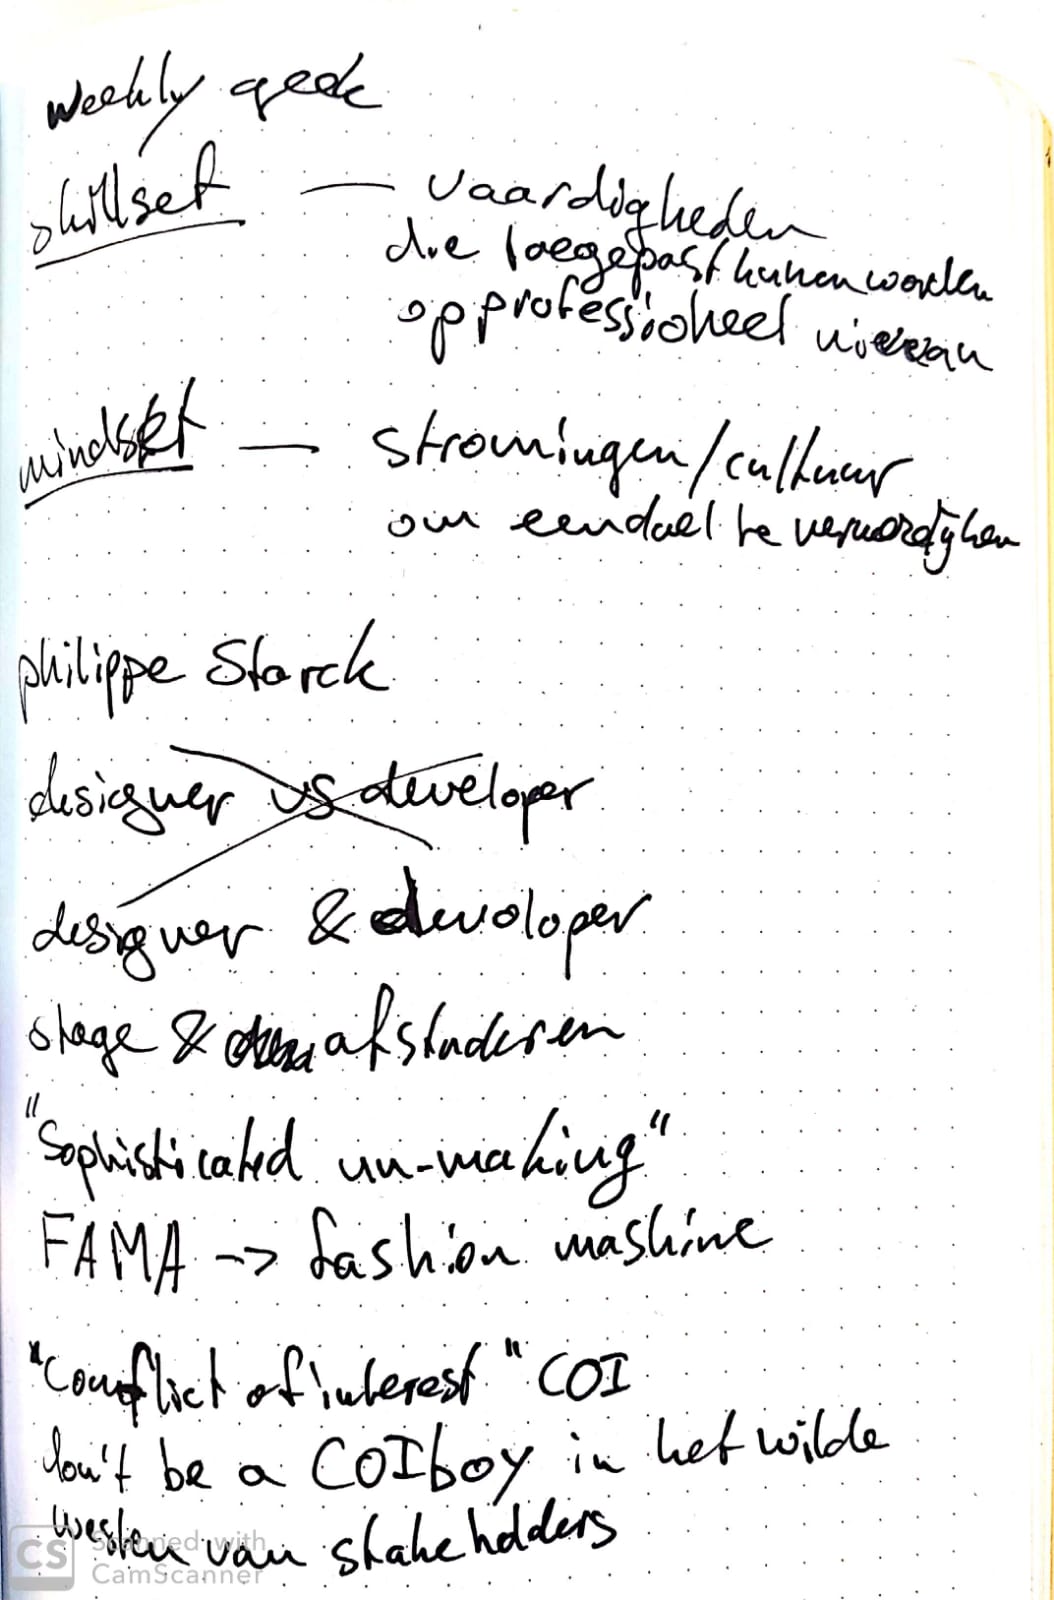 weekly geek
skillset — vaardigheden
die toegepast kunnen worden
op professioneel niveau
mindset — stromingen/cultuur
om een doel te
philippe Starck
designer vs developer
designer & developer
stage & afstuderen
"Sophisticated un-making"
FAMA -> fashion mashine
"Conflict of interest" COI
don't be a COIboy in het wilde
westen van stakeholders
CS Scanned with
CamScanner